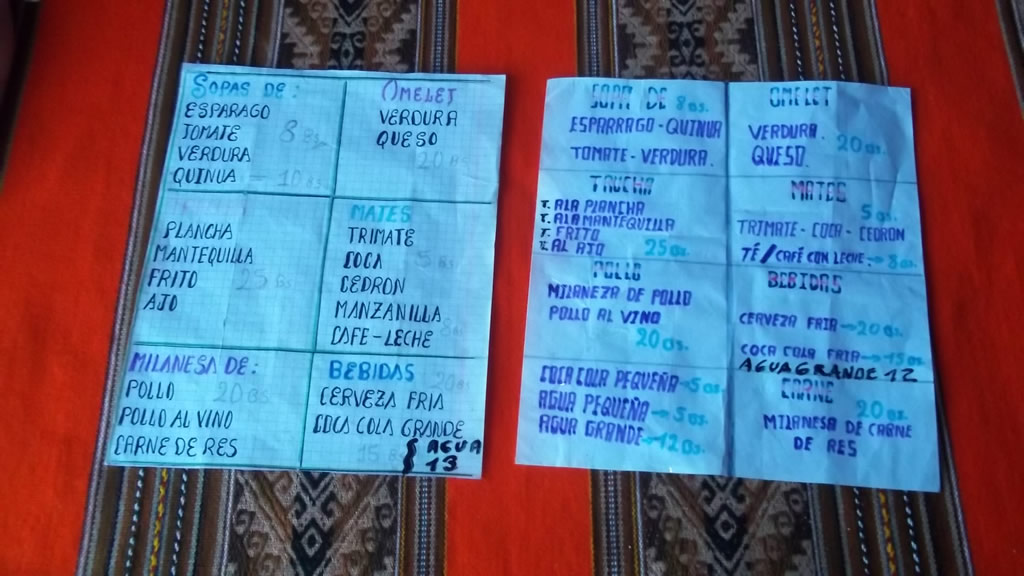 SOPAS DE:
ESPARAGO
TOMATE 8 Bs
VERDURA
QUINUA - 10 Bs
OMELET
VERDURA
QUESO
20 Bs
PLANCHA
MANTEQUILLA
FRITO 25 Bs
AJO
MATES
TRIMATE
COCA 5 Bs
CEDRON
MANZANILLA
CAFE-LECHE
MILANESA DE:
POLLO 20 Bs
POLLO AL VINO
CARNE DE RES
BEBIDAS 20 Bs
CERVEZA FRIA
COCA COLA GRANDE
15 Bs AGUA
13
SOPA DE 8 Bs.
ESPARRAGO - QUINUA
TOMATE - VERDURA.
OMELET
VERDURA. 20 Bs.
QUESO.
TRUCHA
T. A LA PLANCHA
T. A LA MANTEQUILLA
T. FRITO
T. AL AJO 25 Bs.
MATES
5 Bs.
TRIMATE - COCA - CEDRON
TÉ / CAFÉ CON LECHE. 8 Bs.
POLLO
MILANEZA DE POLLO
POLLO AL VINO
20 Bs.
BEBIDAS
CERVEZA FRIA 20 Bs.
COCA COLA FRIA 15 Bs.
AGUA GRANDE 12
COCA COLA PEQUEÑA 5 Bs
AGUA PEQUEÑA 5 Bs.
AGUA GRANDE 12 Bs.
CARNE
20 Bs.
MILANESA DE CARNE
DE RES